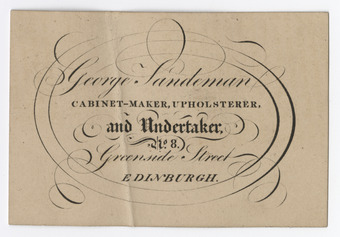 George Sandeman
CABINET-MAKER, UPHOLSTERER,
and Undertaker,
No. 8.
Greenside Street
EDINBURGH.